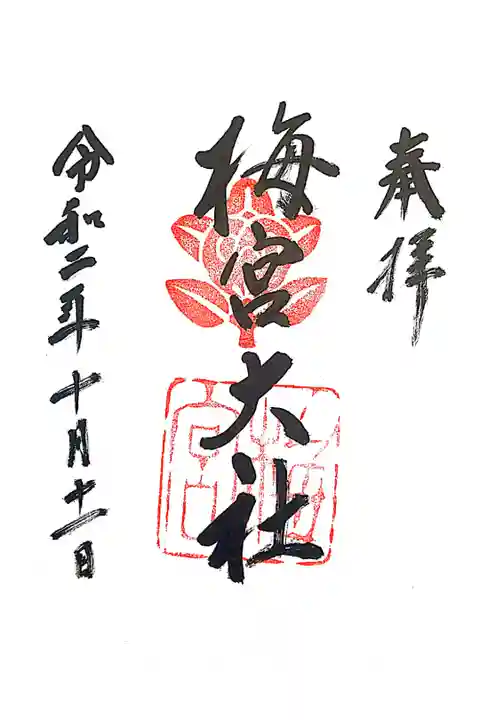 奉拝
梅宮大社
令和二年十月十一日